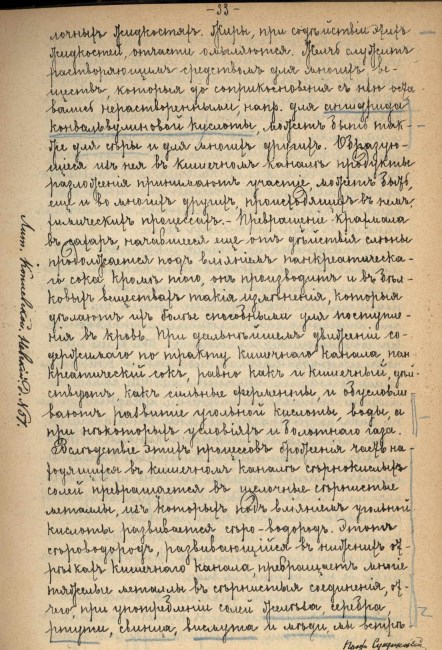 - 33 -
лочныхъ жидкостяхъ. Жиры, при содѣйствіи этихъ
жидкостей, отчасти омыляются. Желчь служитъ
растворяющимъ средствомъ для многихъ ве-
ществъ, которыя до соприкосновенія съ нею оста
вались нерастворенными, напр. для ангидрида
конвольвулиновой кислоты, можетъ быть так-
же для сѣры и для многихъ другихъ. Образую-
щіеся изъ нея въ кишечномъ каналѣ продукты
разложенія принимаютъ участіе, можетъ быть,
еще и во многихъ другихъ, происходящихъ въ немъ,
химическихъ процессахъ. - Превращеніе крахмала
въ сахаръ, начавшееся еще отъ дѣйствія слюны
продолжается подъ вліяніемъ панкреатическа-
го сока. Кромѣ того, онъ производитъ и въ бѣл-
ковыхъ веществахъ такія измѣненія, которыя
дѣлаютъ ихъ болѣе способными для поступле-
нія въ кровь. При дальнѣйшемъ движеніи со-
держимаго по тракту кишечнаго канала, пан
креатическій сокъ, равно какъ и кишечный, дѣй
ствуютъ, какъ сильные ферменты, и обусловли
ваютъ развитіе угольной кислоты, воды, а
при нѣкоторыхъ условіяхъ и болотнаго газа.
Вслѣдствіе этихъ процессовъ броженія часть на-
ходящихся въ кишечномъ каналѣ сѣрнокислыхъ
солей превращается въ щелочные сѣрнистые
металлы, изъ которыхъ подъ вліяніемъ угольной
кислоты развивается сѣро-водородъ. Этотъ
сѣроводородъ, развивающійся въ нижнихъ от-
рѣзкахъ кишечнаго канала, превращаетъ многіе
тяжелые металлы въ сѣрнистыя соединенія, от-
чего, при употребленіи солей желѣза, серебра,
ртути, свинца, висмута и мѣди, мы встрѣ-
Лит. Невскій д. № 57.